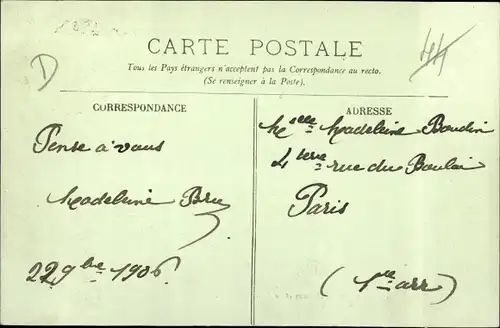 CARTE POSTALE
Tous les Pays étrangers n'acceptent pas la Correspondance au recto.
(Se renseigner à la Poste).
D
CORRESPONDANCE
Pense à vous
Madeleine Bru
22 9bre 1906
ADRESSE
Melle Madeleine Boudin
rue du Bouloi
Paris
(1er arr)